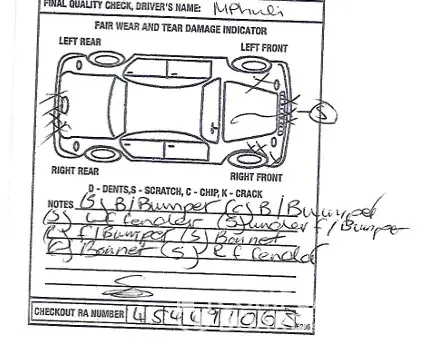 FINAL QUALITY CHECK, DRIVER'S NAME: Mphuli
FAIR WEAR AND TEAR DAMAGE INDICATOR
LEFT REAR LEFT FRONT
S
RIGHT REAR RIGHT FRONT
D - DENTS,S - SCRATCH, C - CHIP, K - CRACK
NOTES (S) B/Bumper (C) B/Bumper
(S) Lf fender (S) under f/Bumper
f/Bumper (S) Bonnet
(C) Bonnet (S) Rf fender
CHECKOUT RA NUMBER 454491065